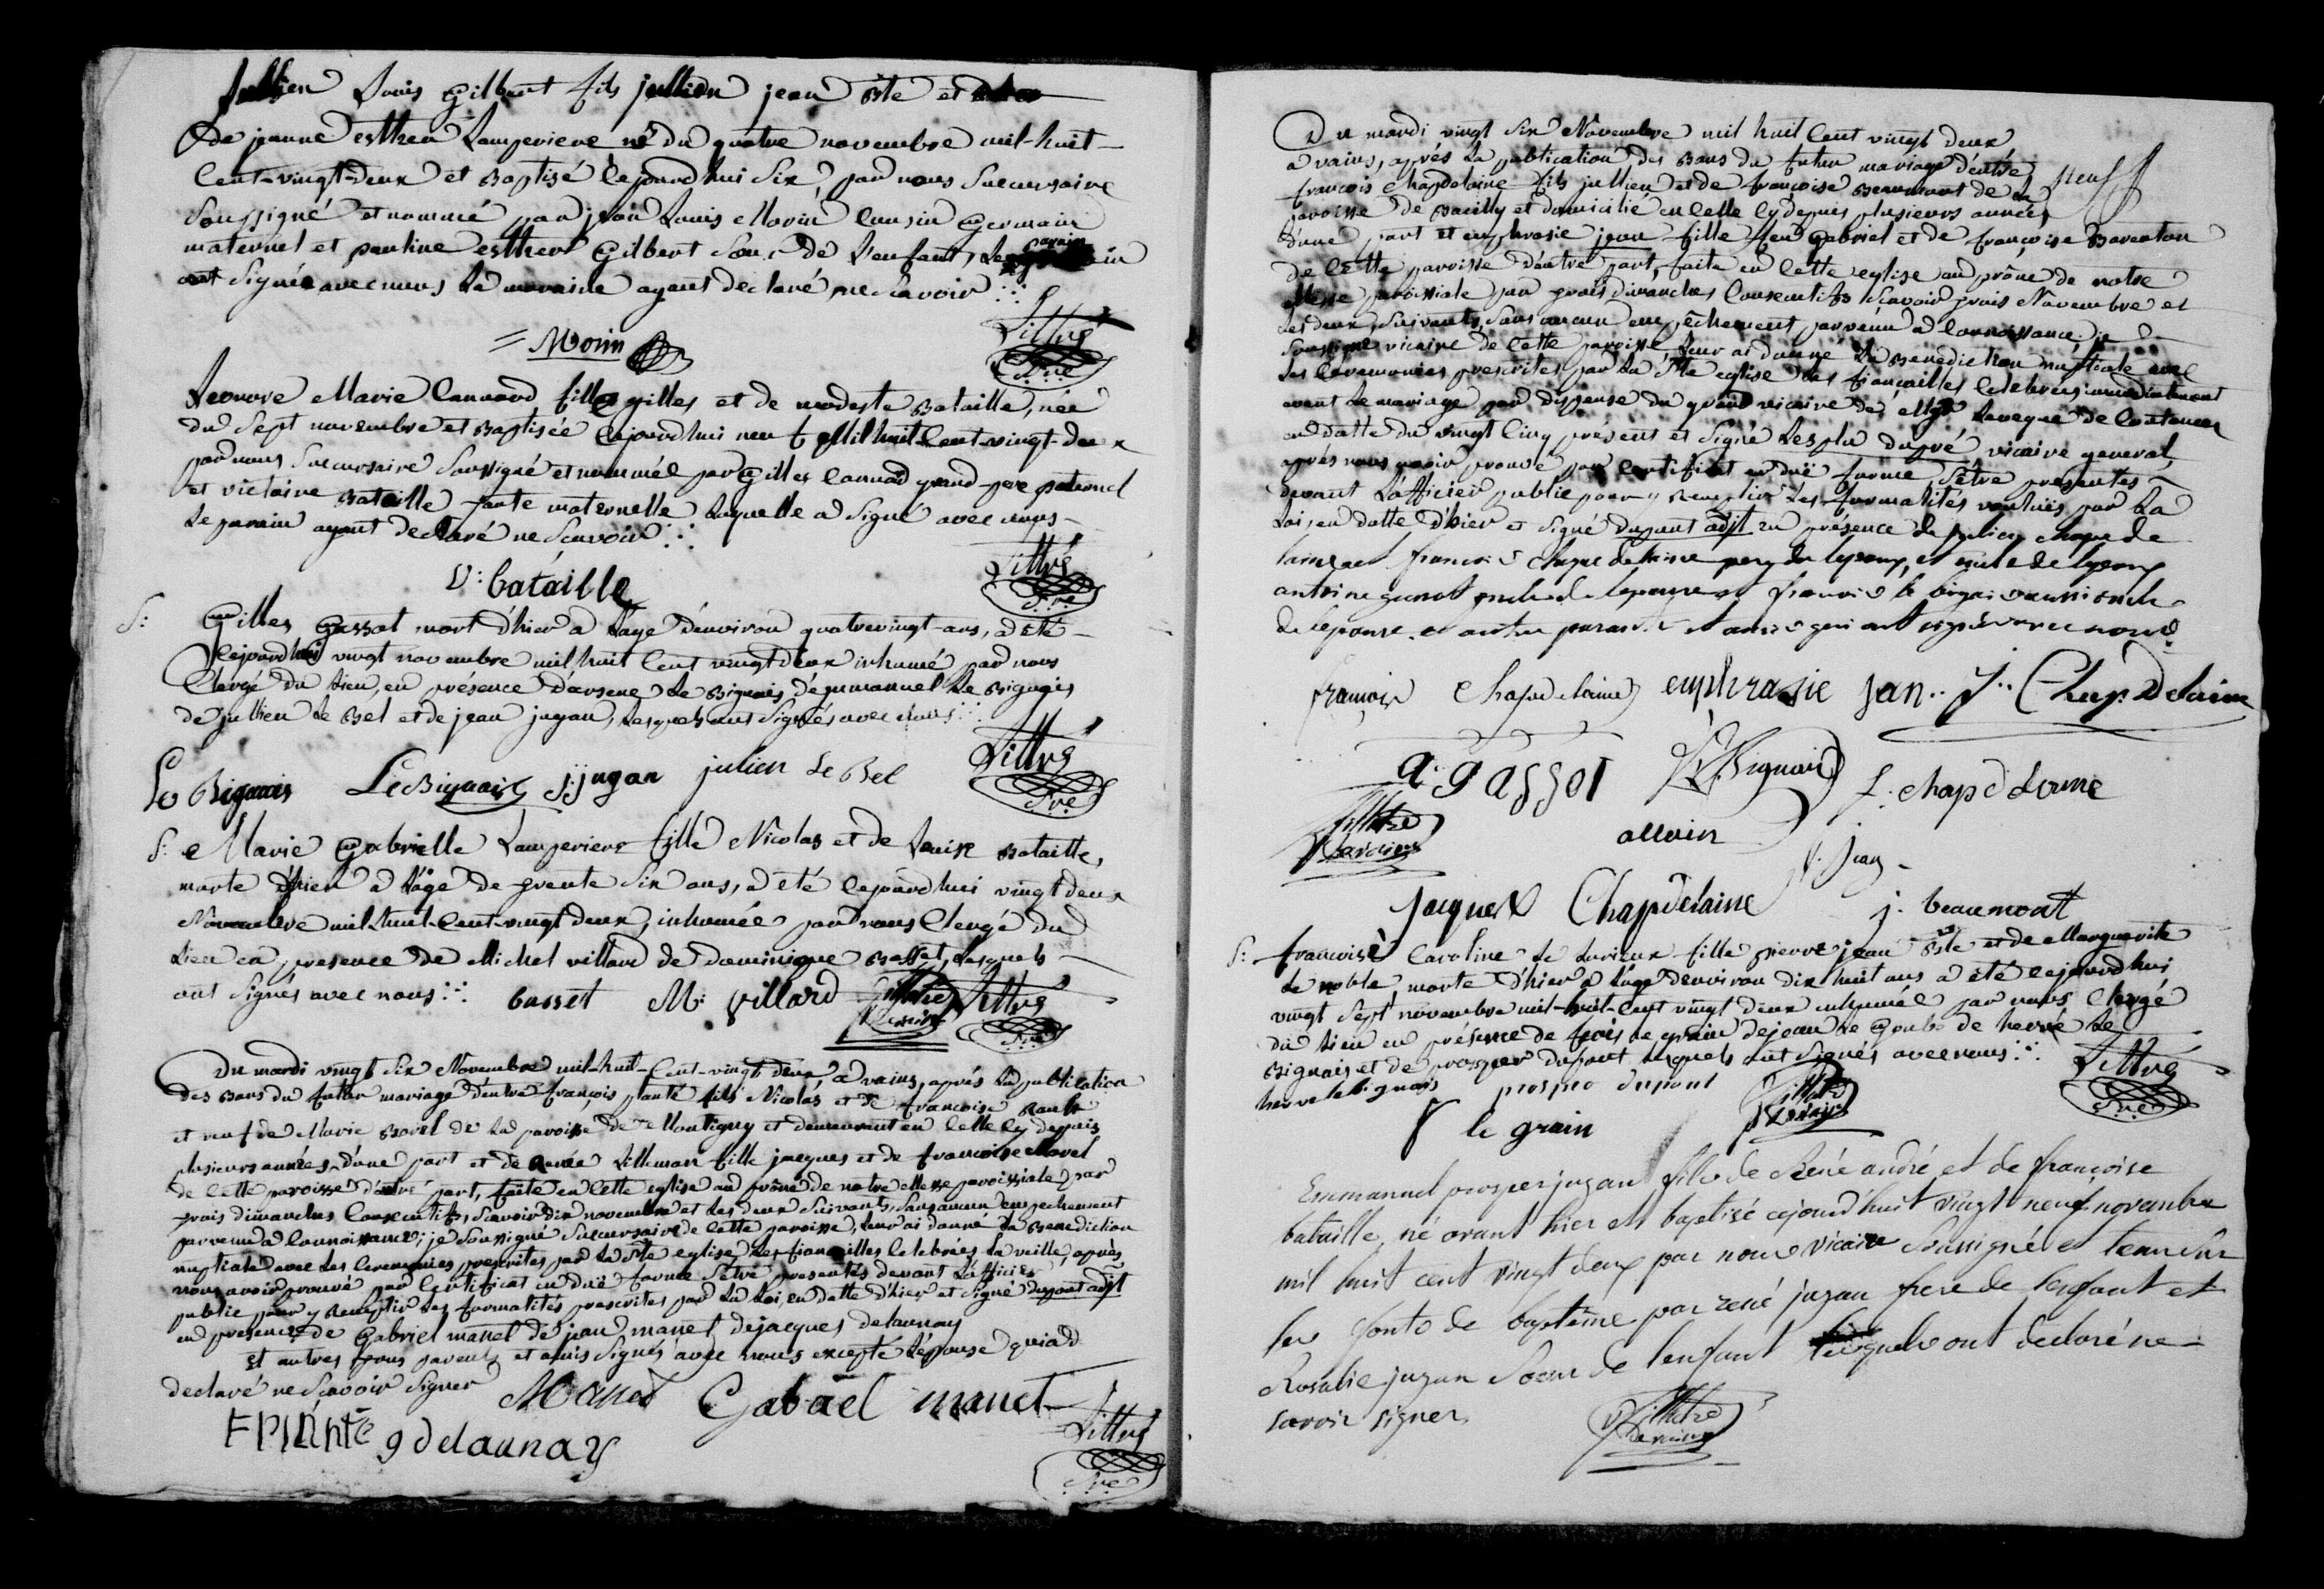 Jullien Louis Gilbert fils jullien jean Bte et
de jeanne esther Lamperiere né du quatre novembre mil-huit-
Cent-vingt-deux et Baptisé cejourdhui Six, par nous Succursaire
Soussigné et nommé par jean Louis Morin Cousin Germain
maternel et pauline esther Gilbert Soeur de L'enfant, Le parain
ont Signée avec nous La maraine ayant declaré ne Scavoir
Morin
Littré
Sre
Leonore Marie Cannard fille gilles et de modeste Bataille, née
du Sept novembre et Baptisée cejourdhui neuf Mil huit-Cent-vingt-deux
par nous Succursaire Soussigné et nommée par Gilles Cannard grand-pere paternel
et victoire Bataille tante maternelle Laquelle a Signé avec nous-
Le parain ayant declaré ne Scavoir
V: bataille
Littré
Sre
S: Gilles Gassot mort d'hier a Lage d'environ quatrevingt-ans, a été-
cejourdhui vingt novembre mil huit Cent vingt deux inhumé par nous
Clergé du Lieu, en présence d'arsene Le Bignais d'emmanuel Le Bignais
de jullien Le Bel et de jean jugan, Lesquels ont Signés avec nous
Le Bignais LeBignais j:jugan julien Le Bel
Littré
Sre
S: Marie Gabrielle Lamperiere fille Nicolas et de Louise Bataille,
morte d'hier a L'age de trente Six ans, a été cejourdhui vingt deux
Novembre mil-huit-Cent-vingt deux, inhumée par nous Clergé du
Lieu en presence de Michel villard de dominique Basset, Lesquels
ont Signés avec nous: basset M: villard Littré
Sre
Du mardi vingt Six Novembre mil-huit-Cent-vingt deux a vains, aprés La publication
des Bans du futur mariage d'entre françois planté fils Nicolas et de francoise Raulx
et veuf de Marie Borel de La paroisse de Montigny et demeurent en Celle Cy depuis
plusieurs années, d'une part et de Renée Lilleman fille jacques et de francoise Morel
de Cette paroisse d'autre part, faite en Cette eglise au prône de notre Messe paroissiale par
trois dimanches Consecutifs, Scavoir dix novembre et Les deux Suivants, Sans aucun empechement
parvenu a Connoissance; je Soussigné Succursaire de Cette paroisse, Leur ai donné La Benediction
nuptiale avec Les Ceremonies prescrites par La Ste eglise, Les fiancailles Celebrées La veille, aprés
nous avoir prouvé par Certificat en duë forme S'etre presentés devant L'officier
public pour y Remplir Les formalités prescrites par La Loi, en datte d'hier et Signé dupont adjt
en presence de Gabriel manet de jean manet dejacques delaunay
Et autres tous parents et amis Signés avec nous excepté L'épouse qui a
declaré ne Scavoir Signer Manet Gabriel manet
FPlanté gdelaunay
Littré
Sre
Du mardi vingt Six Novembre mil huit Cent vingt deux
a vains, aprés La publication des Bans du futur mariage d'entre
françois Chapdelaine fils jullien et de françoise Beaumont de La
paroisse de Bacilly et domicilié en Celle Cy depuis plusieurs années
d'une part et euphrasie jean fille feu Gabriel et de françoise Baventon
de Cette paroisse d'autre part, faite en Cette eglise au prône de notre
Messe paroissiale par trois dimanches Consecutifs Scavoir trois Novembre et
Les deux Suivants, Sans aucun empêchement parvenu a Connoissance. je
Soussigné vicaire de Cette paroisse Leur ai donné La Benediction nuptiale avec
Les Ceremonies prescrites par La Ste eglise Les fiancailles Celebrées immédiatement
avant Le mariage par dispense du grand vicaire de Mgr Leveque de Coutances
en datte du vingt Cinq présent et Signé Lesplu dupré vicaire general,
aprés nous avoir prouvé par Certificat en duë forme S'etre presentés
devant L'officier public pour y Remplir Les formalités vouluës par La
Loi, en datte d'hier et Signé dupont adjt en présence de julien chapde
laine et francois chapdelaine
antoine gassot oncle de lepouse francois le bignais aussi oncle
de lepouse et autres parans et amis qui ont signé avec nous
françois Chapdelaine euphrasie jan.. J.. Chapdelaine
a. gassot Bignais f. chapdelaine
allain
jacques Chapdelaine j. beaumont
S: françoise Caroline Le Lurieux fille pierre jean Bte et de Marguerite
Le noble, morte d'hier a L'age denviron dix huit ans a été cejourdhui
vingt Sept novembre mil-huit-Cent vingt deux inhumée par nous Clergé
du Lieu en présence de fçois Le grain de jean Le de hervé Le
Bignais et de prosper dupont Lesquels ont Signés avec nous
herve lebignais prosper dupont
Littré
Sre
f le grain
Emmanuel prosper jugan fils de René andré et de françoise
bataille, né avant hier et baptisé cejourd'huit vingt neuf novembre
mil huit cent vingt deux par nous vicaire Soussigné et tenu sur
les fonts de baptême par rené jugan frere de lenfant et
Rosalie jugan Soeur de lenfant lesquels ont declaré ne
savoir signer.